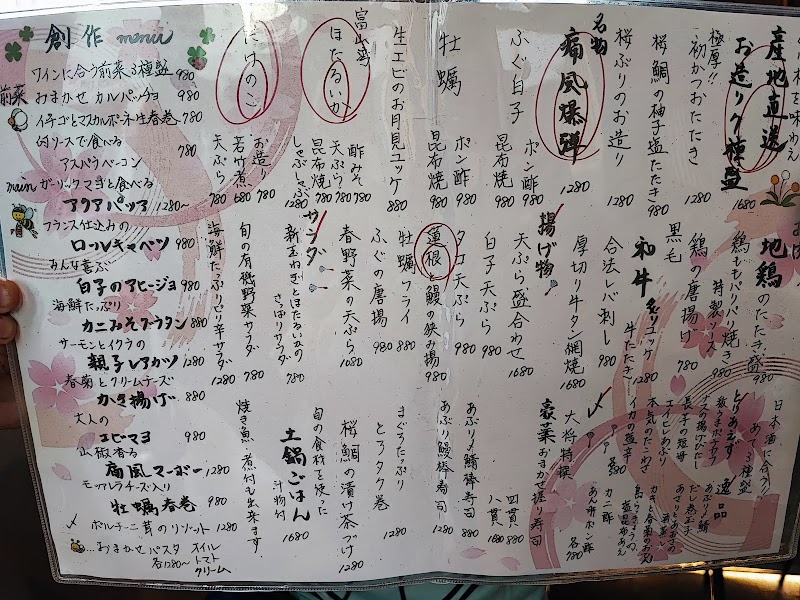 創作 menu
ワインに合う前菜3種盛 980
前菜 おまかせ カルパッチョ 980
イチゴとマスカルポーネ生春巻 780
何ソースで食べる
アスパラベーコン 780
main ガーリックマヨと食べる
アクアパッツァ 1280〜
フランス仕込みの
ロールキャベツ 980
みんな喜ぶ
白子のアヒージョ 980
海鮮たっぷり
カニみそグラタン 880
サーモンとイクラの
親子レアカツ 1280
春菊とクリームチーズ
かき揚げ 880
大人の
エビマヨ 980
山椒香る
痛風マーボー 1280
モッツァレラチーズ入り
牡蠣春巻 980
ポルチーニ茸のリゾット 1280
…おまかせパスタ オイル
トマト
クリーム
各1280〜
産地直送
お造り7種盛 1680
極厚!!
初かつおたたき 1280
桜鯛の柚子塩たたき 980
桜ぶりのお造り 1280
名物
痛風爆弾 1280
ふぐ白子
ポン酢 980
昆布焼 980
牡蠣
ポン酢 880
昆布焼 980
生エビのお月見ユッケ 880
富山湾
ほたるいか
酢みそ 780
天ぷら 780
昆布焼 780
しゃぶしゃぶ 1280
たけのこ
お造り 780
若竹煮 680
天ぷら 780
地鶏のたたき盛 980
鶏ももパリパリ焼き 980
特製ソース
鶏の唐揚げ 780
黒毛
和牛 炙りユッケ 1280
牛たたき
合法レバ刺し 980
厚切り牛タン網焼 1680
揚げ物
天ぷら盛合わせ 1680
白子天ぷら 980
タコ天ぷら 980
蓮根と鰻の挟み揚 980
牡蠣フライ 880
ふぐの唐揚 980
春野菜の天ぷら 1080
サラダ
新玉ねぎとほたるいかの
さっぱりサラダ 780
旬の有機野菜サラダ 780
海鮮たっぷりピリ辛サラダ 1280
日本酒に合う!!
あて3種盛 980
とりあえず
逸品
大将特撰
豪華おまかせ握り寿司
四貫 880
八貫 1680
あぶり鯖棒寿司 880
あぶり鰻棒寿司 1280
まぐろたっぷり
とろタク巻 1280
桜鯛の漬け茶づけ 1280
旬の食材を使った
土鍋ごはん
汁物付 1680
焼き魚 煮付も出来ます